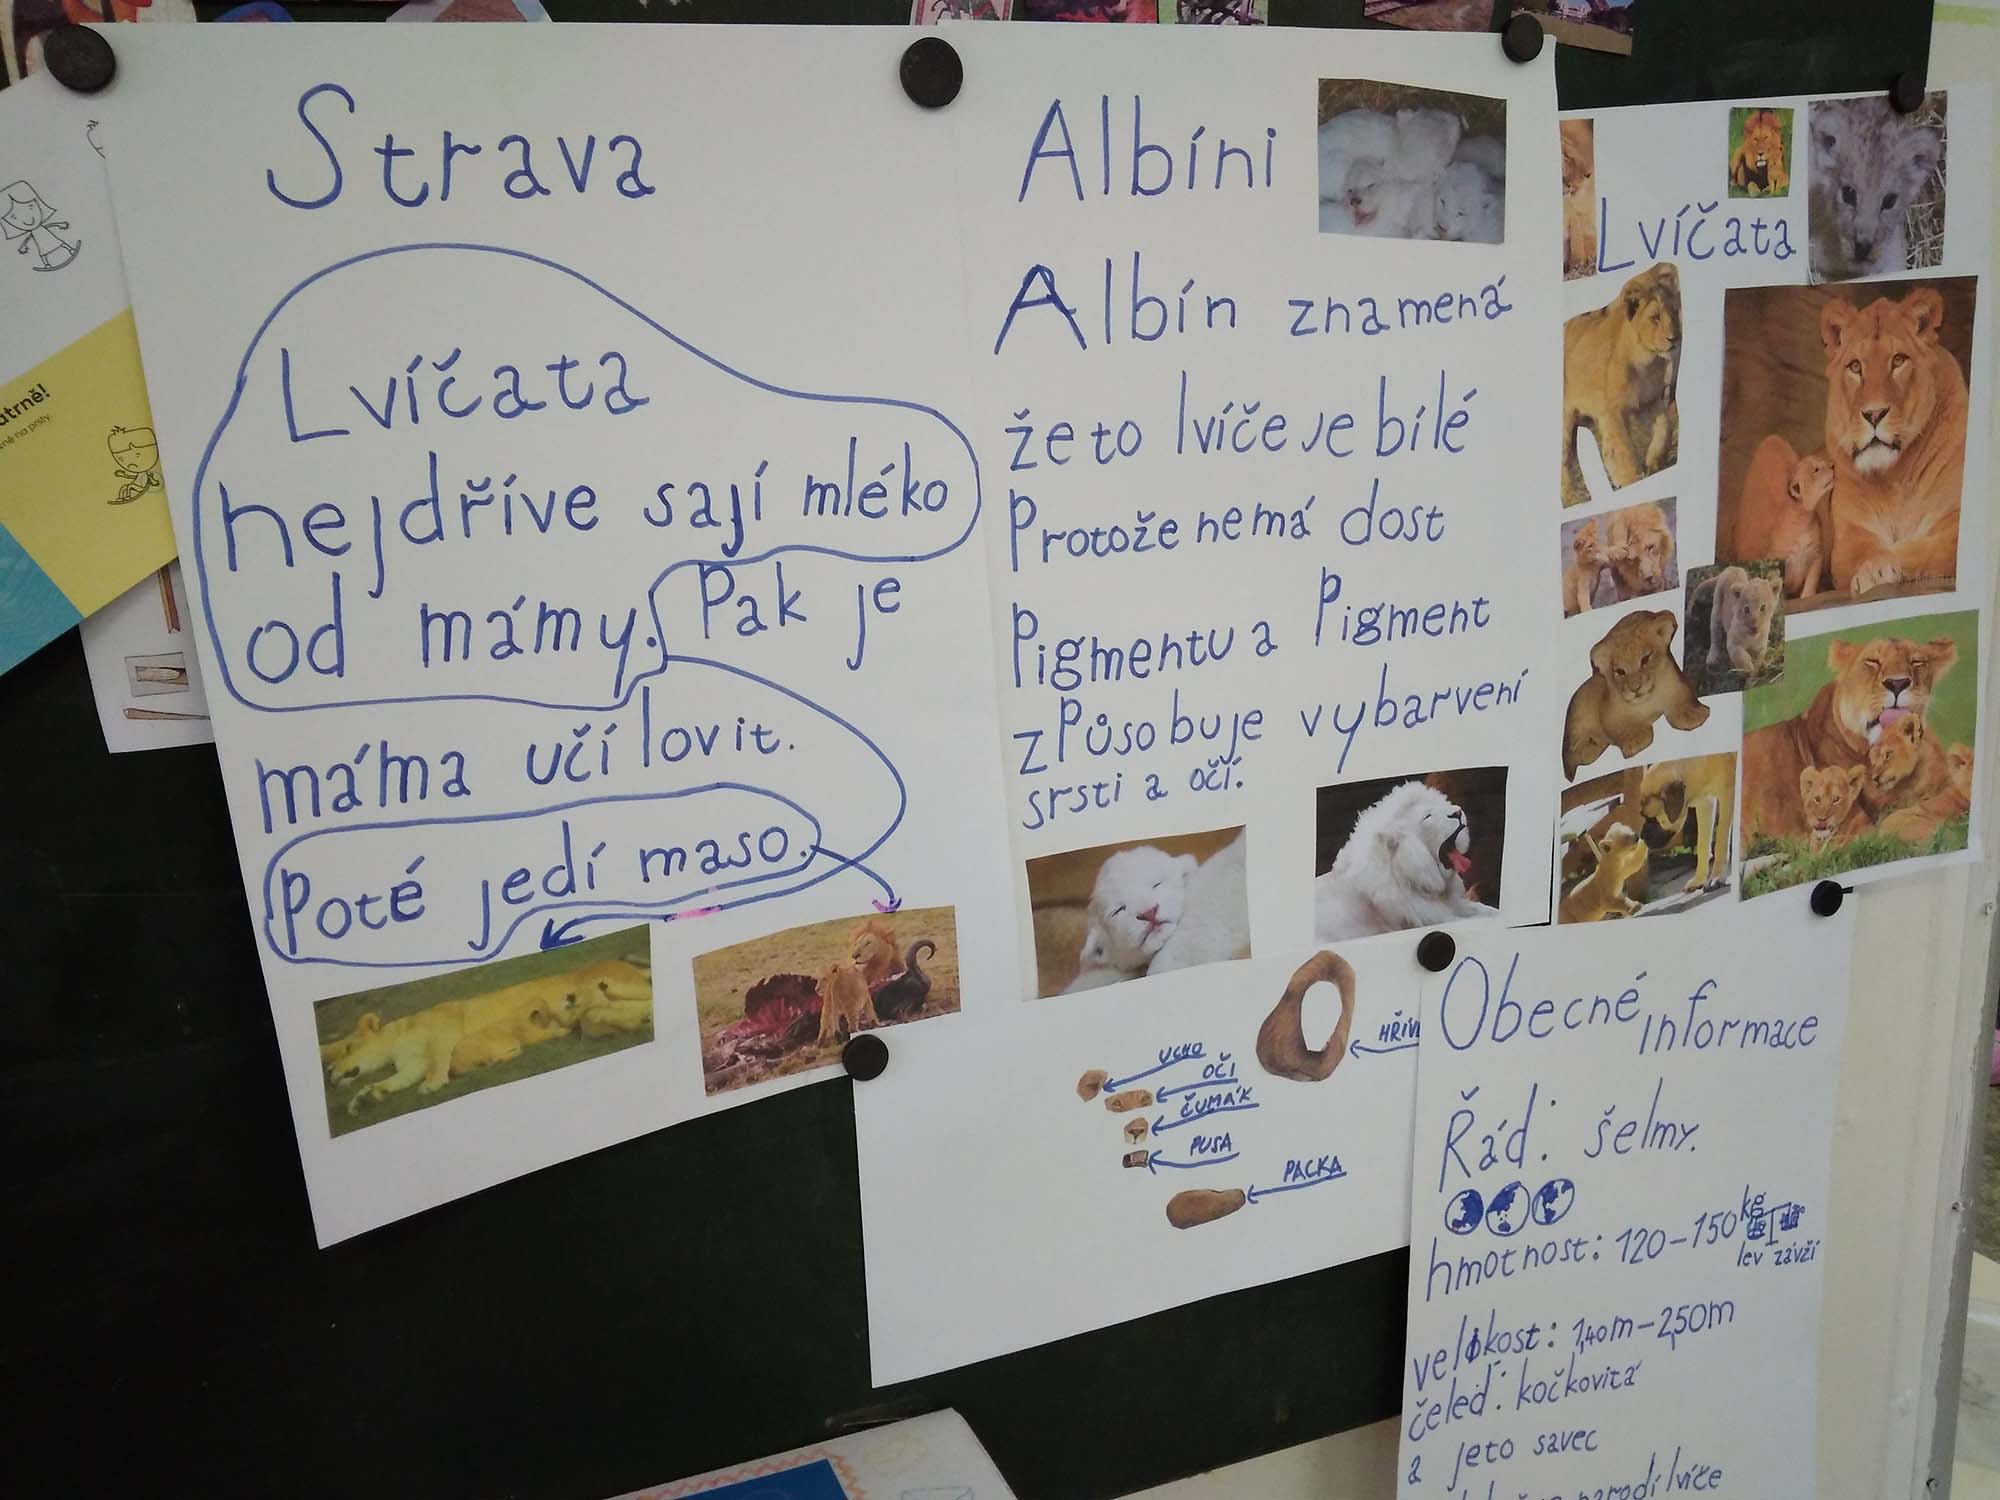 Strava
Lvíčata
nejdříve sají mléko
od mámy. Pak je
máma učí lovit.
Poté jedí maso.
Albíni
Albín znamená
že to lvíče je bílé
Protože nemá dost
Pigmentu a Pigment
zPůsobuje vybarvení
srsti a očí.
Lvíčata
UCHO
OČI
ČUMÁK
PUSA
PACKA
HŘÍV
Obecné informace
Řád: šelmy.
hmotnost: 120-150kg
lev závží
velikost: 1,40m-2,50m
čeleď: kočkovitá
a jeto savec
narodí lvíče
atrně!